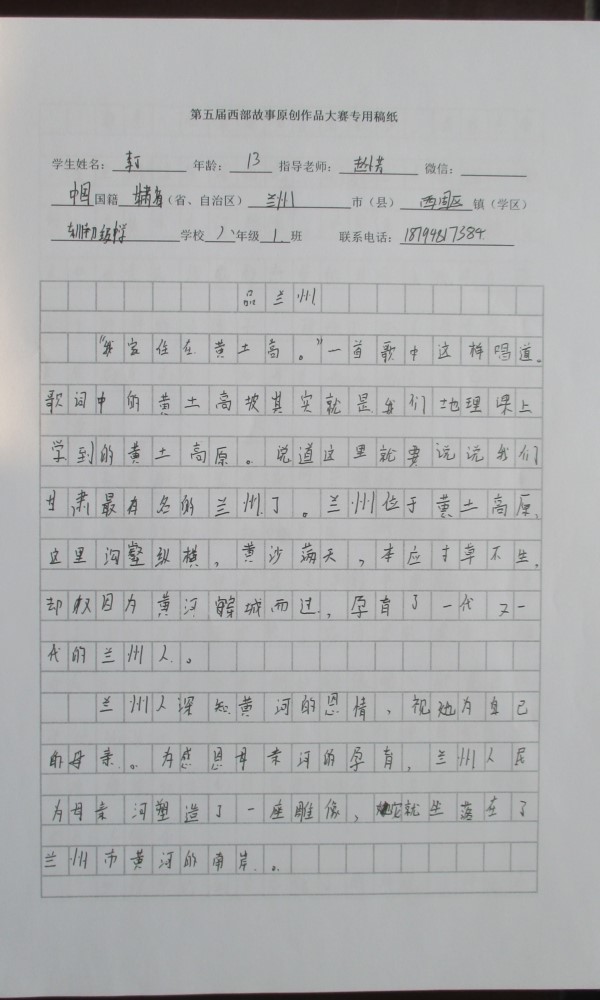 第五届西部故事原创作品大赛专用稿纸
学生姓名： 年龄：13 指导老师： 微信：
中国国籍 甘肃省（省、自治区） 兰州市（县） 西固区镇（学区）
学校 八年级 1 班 联系电话：
品兰州
“我家住在黄土高。”一首歌中这样唱道。
歌词中的黄土高坡其实就是我们地理课上
学到的黄土高原。说道这里就要说说我们
甘肃最有名的兰州了。兰州位于黄土高原、
这里沟壑纵横，黄沙满天，本应寸草不生。
却权因为黄河穿城而过，孕育了一代又一
代的兰州人。
兰州人深知黄河的恩情、视她为自己
的母亲。为感恩母亲河的孕育，兰州人民
为母亲河塑造了一座雕像，它就坐落在了
兰州市黄河的南岸。